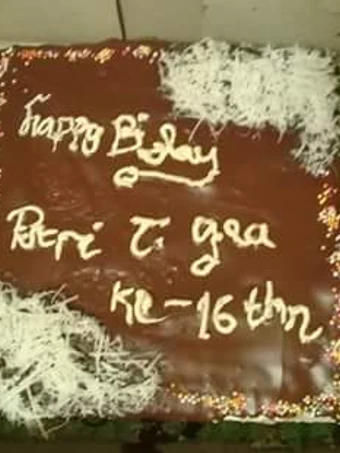 Happy Biday
Putri T. gea
Ke-16 thn